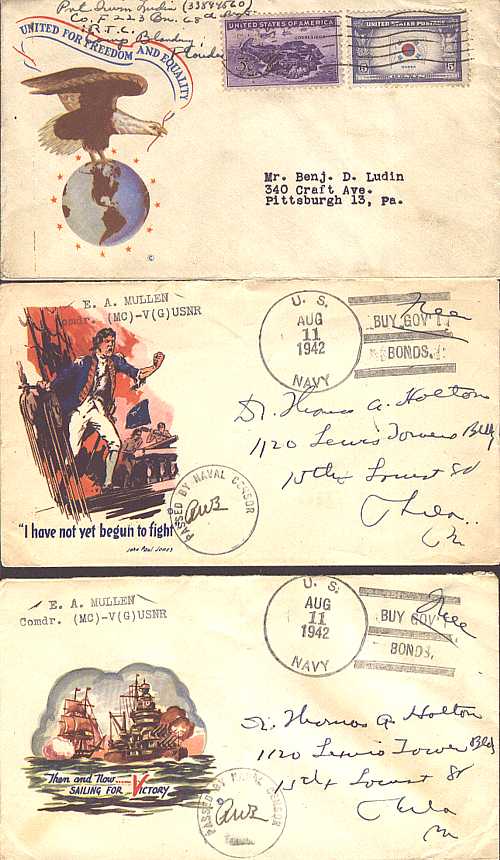 Pvt. Irwin Ludin (33844560)
Co. F 223 Bn. 68th Regt.
I.R.T.C.
Camp Blanding, Florida
UNITED FOR FREEDOM AND EQUALITY
UNITED STATES OF AMERICA
CORREGIDOR
3¢
UNITED STATES POSTAGE
5 KOREA 5
Mr. Benj. D. Ludin
340 Craft Ave.
Pittsburgh 13, Pa.
©
E. A. MULLEN
Comdr. (MC)-V(G)USNR
U. S.
AUG
11
1942
NAVY
Free
BUY GOV'T
BONDS.
Dr. Thomas A. Holton
1120 Lewis Towers Bldg
15th & Locust St
Phila..
Pa
PASSED BY NAVAL CENSOR
"I have not yet begun to fight"
John Paul Jones
E. A. MULLEN
Comdr. (MC)-V(G)USNR
U. S.
AUG
11
1942
NAVY
Free
BUY GOV'T
BONDS.
Dr. Thomas A. Holton
1120 Lewis Tower Bldg
15th & Locust St
Phila
Pa
Then and Now.....
SAILING FOR VICTORY
PASSED BY NAVAL CENSOR